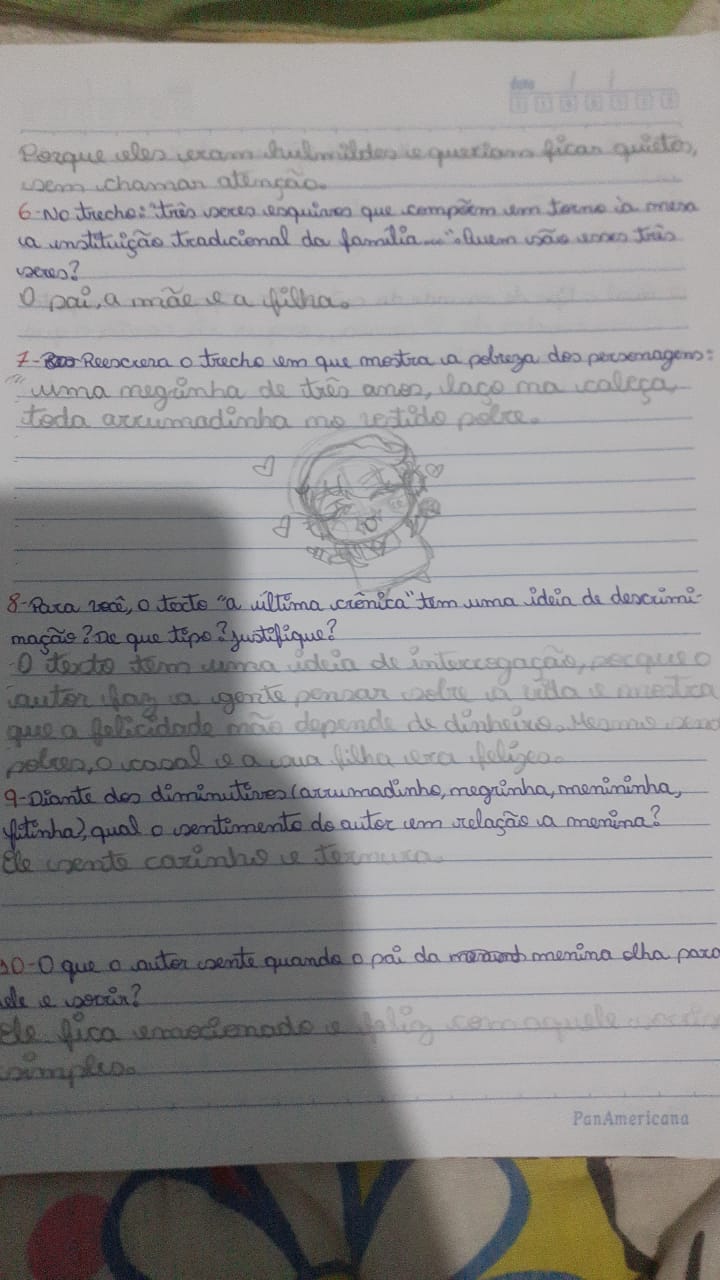 data / /
Porque eles eram hulmildes e queriam ficar quietos,
sem chamar atenção.
6-No trecho: "três seres esquivos que compõem em torno à mesa
a instituição tradicional da família...". Quem são esses três
seres?
O pai, a mãe e a filha.
7- Reescreva o trecho em que mostra a pobreza dos personagens:
"uma negrinha de três anos, laço na cabeça,
toda arrumadinha no vestido pobre.
8-Para você, o texto "a última crônica" tem uma ideia de descrimi-
nação? De que tipo? Justifique?
O texto tem uma ideia de interrogação, porque o
autor faz a gente pensar sobre a vida e mostra
que a felicidade não depende de dinheiro. Mesmo
pobres, o casal e a sua filha era felizes.
9-Diante dos diminutivos (arrumadinho, negrinha, menininha,
fitinha), qual o sentimento do autor em relação a menina?
Ele sente carinho e ternura.
10-O que o autor sente quando o pai da menina olha para
ele e sorir?
Ele fica emocionado e feliz com aquele
simples.
PanAmericana